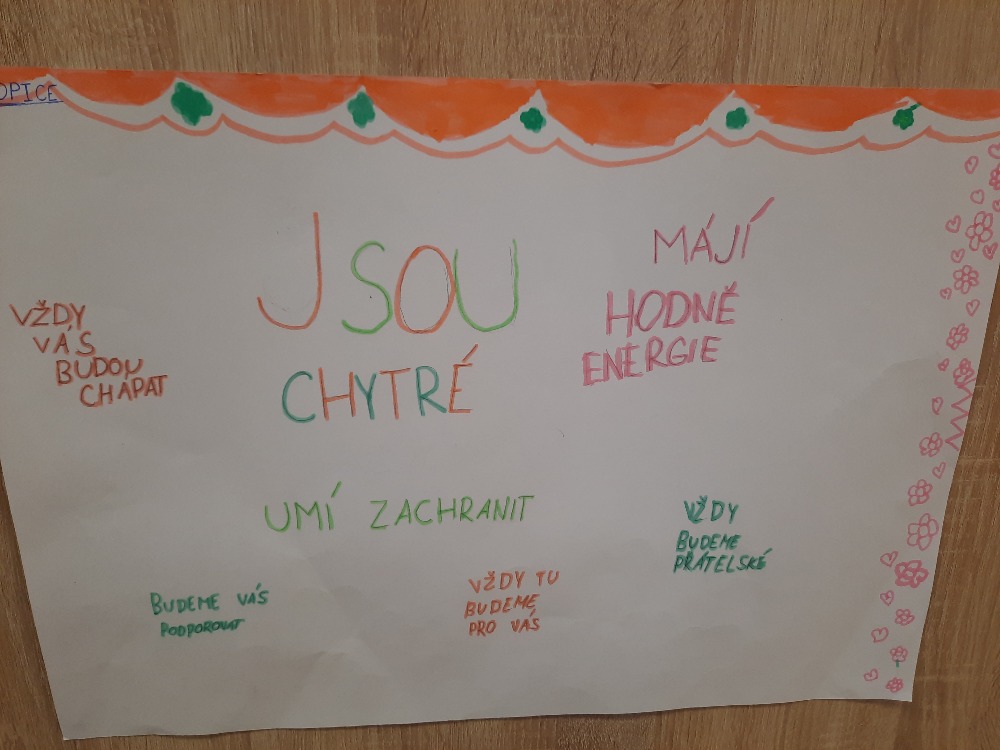 OPICE
JSOU
CHYTRÉ
MÁJÍ
HODNĚ
ENERGIE
VŽDY
VÁS
BUDOU
CHÁPAT
UMÍ ZACHRANIT
VŽDY
BUDEME
PŘÁTELSKÉ
BUDEME VÁS
PODPOROVAT
VŽDY TU
BUDEME
PRO VÁS